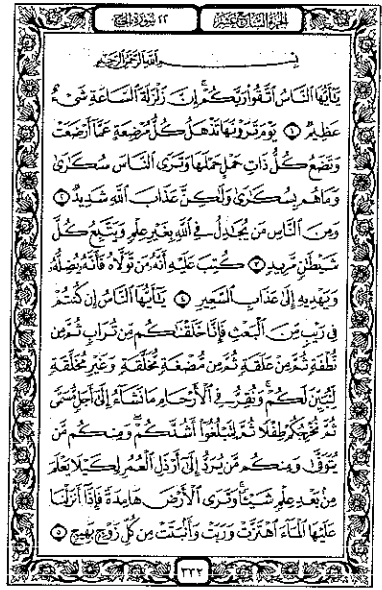 الجزء السابع عشر
٢٢ سورة الحج
بِسْمِ اللَّهِ الرَّحْمَنِ الرَّحِيمِ
يَٰٓأَيُّهَا ٱلنَّاسُ ٱتَّقُوا۟ رَبَّكُمْ ۚ إِنَّ زَلْزَلَةَ ٱلسَّاعَةِ شَىْءٌ
عَظِيمٌ ١ يَوْمَ تَرَوْنَهَا تَذْهَلُ كُلُّ مُرْضِعَةٍ عَمَّآ أَرْضَعَتْ
وَتَضَعُ كُلُّ ذَاتِ حَمْلٍ حَمْلَهَا وَتَرَى ٱلنَّاسَ سُكَٰرَىٰ
وَمَا هُم بِسُكَٰرَىٰ وَلَٰكِنَّ عَذَابَ ٱللَّهِ شَدِيدٌ ٢
وَمِنَ ٱلنَّاسِ مَن يُجَٰدِلُ فِى ٱللَّهِ بِغَيْرِ عِلْمٍ وَيَتَّبِعُ كُلَّ
شَيْطَٰنٍ مَّرِيدٍ ٣ كُتِبَ عَلَيْهِ أَنَّهُۥ مَن تَوَلَّاهُ فَأَنَّهُۥ يُضِلُّهُۥ
وَيَهْدِيهِ إِلَىٰ عَذَابِ ٱلسَّعِيرِ ٤ يَٰٓأَيُّهَا ٱلنَّاسُ إِن كُنتُمْ
فِى رَيْبٍ مِّنَ ٱلْبَعْثِ فَإِنَّا خَلَقْنَٰكُم مِّن تُرَابٍ ثُمَّ مِن
نُّطْفَةٍ ثُمَّ مِنْ عَلَقَةٍ ثُمَّ مِن مُّضْغَةٍ مُّخَلَّقَةٍ وَغَيْرِ مُخَلَّقَةٍ
لِّنُبَيِّنَ لَكُمْ ۚ وَنُقِرُّ فِى ٱلْأَرْحَامِ مَا نَشَآءُ إِلَىٰٓ أَجَلٍ مُّسَمًّى
ثُمَّ نُخْرِجُكُمْ طِفْلًا ثُمَّ لِتَبْلُغُوٓا۟ أَشُدَّكُمْ ۖ وَمِنكُم مَّن
يُتَوَفَّىٰ وَمِنكُم مَّن يُرَدُّ إِلَىٰٓ أَرْذَلِ ٱلْعُمُرِ لِكَيْلَا يَعْلَمَ
مِنۢ بَعْدِ عِلْمٍ شَيْـًٔا ۚ وَتَرَى ٱلْأَرْضَ هَامِدَةً فَإِذَآ أَنزَلْنَا
عَلَيْهَا ٱلْمَآءَ ٱهْتَزَّتْ وَرَبَتْ وَأَنۢبَتَتْ مِن كُلِّ زَوْجٍۭ بَهِيجٍ ٥
٣٣٢